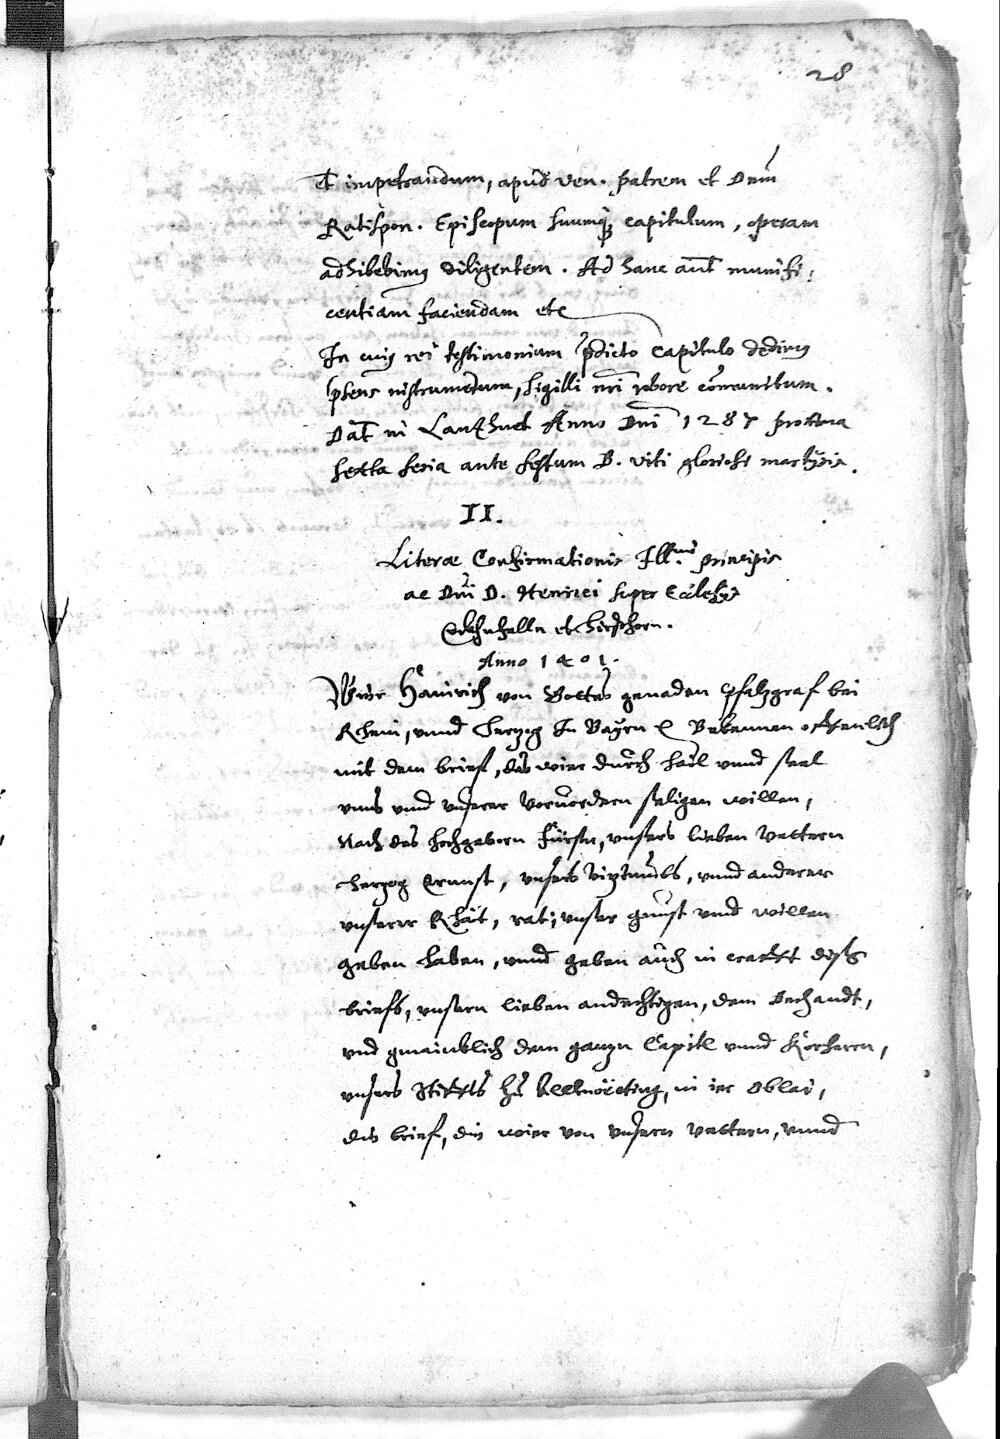 28
et impetrandum, apud ven. patrem et Dnm
Ratispon. Episcopum suumq; capitulum, operam
adhibebimus diligentem. Ad hanc aut munifi:
centiam faciendam etc
In cuius rei testimonium pdicto Capitulo dedimus
psens instrumentum, sigilli nri robore comunitum.
Dat in Lantzhuet Anno Dni 1287 proxima
sexta feria ante festum B. viti gloriosi martyris.
II.
Literæ Confirmationis Illmi principis
ac Dni D. Henrici super Ecclesijs
et Hirschorn.
Anno 1401.
Wür Hainrich von Gottes genaden Pfalzgraf bei
Rhein, unnd Herzog In Bayrn etc Bekennen offentlich
mit dem brief, das wier durch hail unnd seel
unns und unserer Vorvordern seligen willen,
Nach des hochgeborn Fürstn, unsers lieben Vettern
Herzog Ernnst, unsers Viztumbs, unnd anderer
unserer Rhät, rat, unser gunst und willen
geben haben, unnd geben auch in crafft diss
briefs, unsern lieben andechtigen, dem Dechandt,
und gmainklich dem ganzn Capitl unnd Korherrn,
unsers Stiffts zu Alltnötting, in ir Oblai,
die brief, die wier von unsern Vettern, unnd